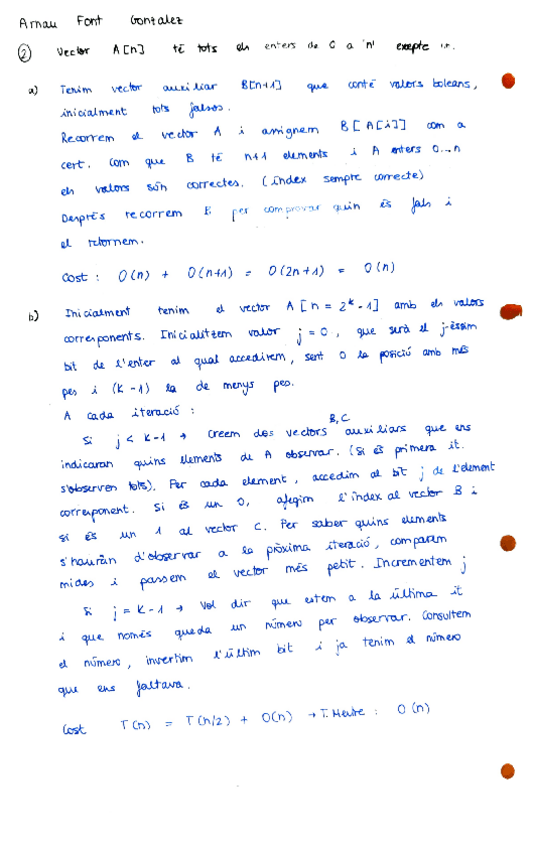 Arnau Font Gonzalez
② Vector A[n] té tots els enters de 0 a 'n' excepte 1.
a) Tenim vector auxiliar B[n+1] que conté valors boleans,
inicialment tots falsos.
Recorrem el vector A i assignem B[A[i]] com a
cert. Com que B té n+1 elements i A enters 0...n
els valors són correctes. (índex sempre correcte)
Després recorrem B per comprovar quin és fals i
el retornem.
Cost: O(n) + O(n+1) = O(2n+1) = O(n)
b) Inicialment tenim el vector A[n = 2^k - 1] amb els valors
corresponents. Inicialitzem valor j = 0, que serà el j-èssim
bit de l'enter al qual accedirem, sent 0 la posició amb més
pes i (k-1) la de menys pes.
A cada iteració:
B, C
Si j < k-1 → Creem dos vectors auxiliars que ens
indicaran quins elements de A observar. (Si és primera it.
s'observen tots). Per cada element, accedim al bit j de l'element
corresponent. Si és un 0, afegim l'índex al vector B i
si és un 1 al vector C. Per saber quins elements
s'hauràn d'observar a la pròxima iteració, comparem
mides i passem el vector més petit. Incrementem j
Si j = k-1 → Vol dir que estem a la última it
i que només queda un número per observar. Consultem
el número, invertim l'últim bit i ja tenim el número
que ens faltava.
Cost T(n) = T(n/2) + O(n) → T. Mestre: O(n)